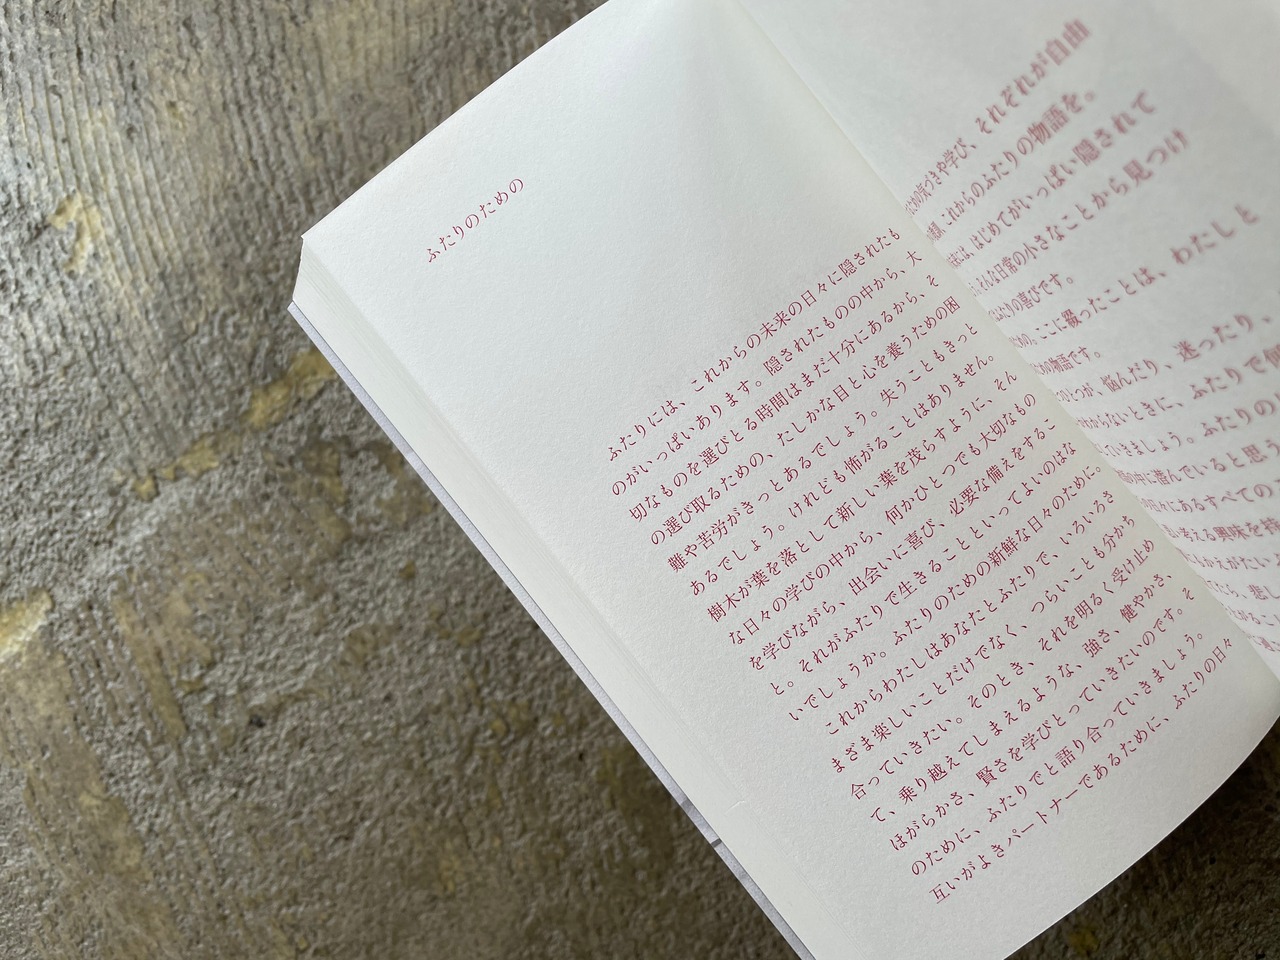 ふたりのための
ふたりには、これからの未来の日々に隠されたも
のがいっぱいあります。隠されたものの中から、大
切なものを選びとる時間はまだ十分にあるから、そ
の選び取るための、たしかな日と心を養うための困
難や苦労がきっとあるでしょう。失うこともきっと
あるでしょう。けれども怖がることはありません。
樹木が葉を落として新しい葉を茂らすように、そん
な日々の学びの中から、何かひとつでも大切なもの
を学びながら、出会いに喜び、必要な備えをするこ
と。それがふたりで生きることといってよいのはな
いでしょうか。ふたりのための新鮮な日々のために。
これからわたしはあなたとふたりで、いろいろさ
まざま楽しいことだけでなく、つらいことも分から
合っていきたい。そのとき、それを明るく受け止め
て、乗り越えてしまえるような、強さ、健やかさ、
ほがらかさ、賢さを学びとっていきたいのです。そ
のために、ふたりでと語り合っていきましょう。
互いがよきパートナーであるために、ふたりの日々
気づきや学び、それぞれが自由
これからのふたりの物語を。
には、はじめてがいっぱい隠されて
そんな日常の小さなことから見つけ
ふたりの喜びです。
ここに綴ったことは、わたしと
の物語です。
ひとつが、悩んだり、迷ったり、
わからないときに、ふたりで
いきましょう。ふたりの
の中に潜んでいると思う
日々にあるすべての
考える興味を持